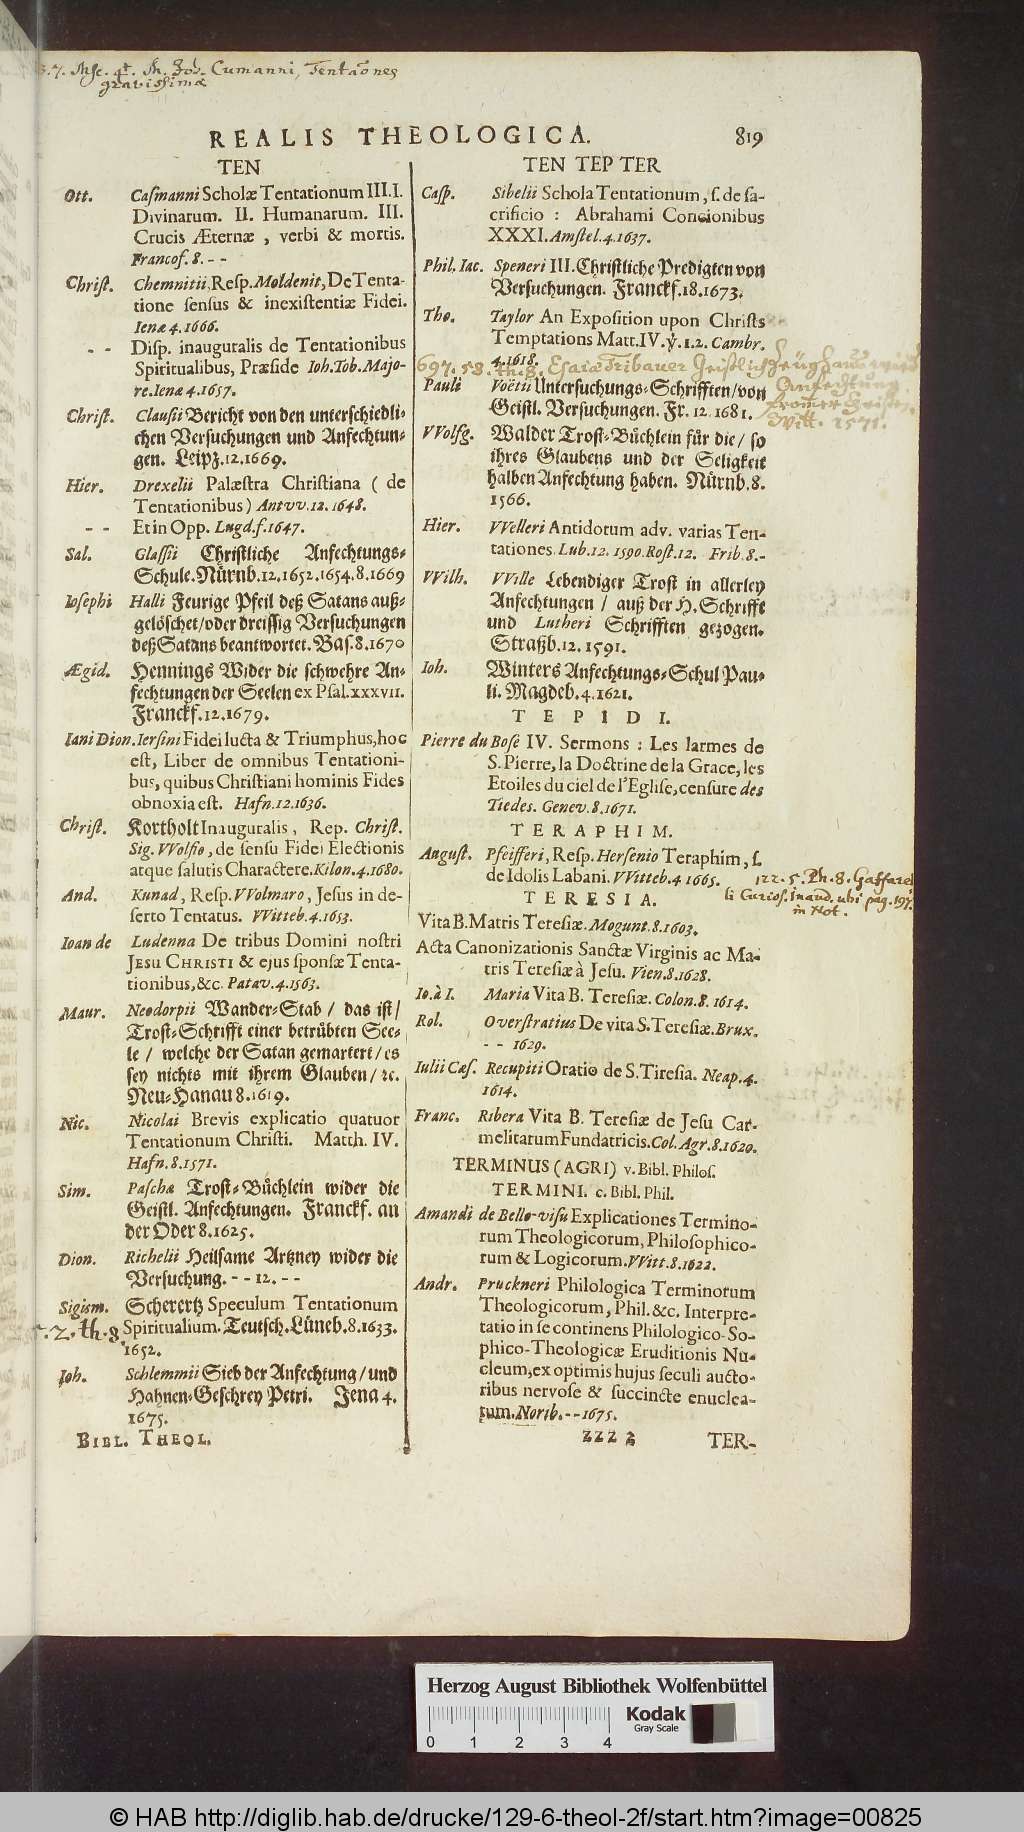 Cumanni, Tentãones
gravissimæ
REALIS THEOLOGICA. 819
TEN
Ott. Caſmanni Scholæ Tentationum III. I.
Divinarum. II. Humanarum. III.
Crucis Æternæ, verbi & mortis.
Francof. 8. - -
Chriſt. Chemnitii, Reſp. Moldenit, De Tenta-
tione ſenſus & inexiſtentiæ Fidei.
Ienæ 4. 1666.
- - Diſp. inauguralis de Tentationibus
Spiritualibus, Præſide Ioh. Tob. Majo-
re. Ienæ 4. 1657.
Chriſt. Clauſii Bericht von den unterſchiedli-
chen Verſuchungen und Anfechtun-
gen. Leipz. 12. 1669.
Hier. Drexelii Palæſtra Chriſtiana (de
Tentationibus) Antvv. 12. 1648.
- - Et in Opp. Lugd. f. 1647.
Sal. Glaſſii Chriſtliche Anfechtungs-
Schule. Nürnb. 12. 1652. 1654. 8. 1669
Ioſephi Halli Feurige Pfeil deß Satans auß-
gelöſchet/ oder dreiſſig Verſuchungen
deß Satans beantwortet. Baſ. 8. 1670
Ægid. Hennings Wider die ſchwehre An-
fechtungen der Seelen ex Pſal. XXXVII.
Franckf. 12. 1679.
Iani Dion. Ierſini Fidei lucta & Triumphus, hoc
eſt, Liber de omnibus Tentationi-
bus, quibus Chriſtiani hominis Fides
obnoxia eſt. Hafn. 12. 1636.
Chriſt. Kortholt Inauguralis, Rep. Chriſt.
Sig. VVolfio, de ſenſu Fidei Electionis
atque ſalutis Charactere. Kilon. 4. 1680.
And. Kunad, Reſp. VVolmaro, Jeſus in de-
ſerto Tentatus. VVitteb. 4. 1653.
Ioan de Ludenna De tribus Domini noſtri
JESU CHRISTI & ejus ſponſæ Tenta-
tionibus, &c. Patav. 4. 1563.
Maur. Neodorpii Wander-Stab/ das iſt/
Troſt-Schrifft einer betrübten See-
le/ welche der Satan gemartert/ es
ſey nichts mit ihrem Glauben/ ꝛc.
Neu-Hanau 8. 1619.
Nic. Nicolai Brevis explicatio quatuor
Tentationum Chriſti. Matth. IV.
Hafn. 8. 1571.
Sim. Paſchæ Troſt-Büchlein wider die
Geiſtl. Anfechtungen. Franckf. an
der Oder 8. 1625.
Dion. Richelii Heilſame Artzney wider die
Verſuchung. - - 12. - -
Sigism. Scherertz Speculum Tentationum
2. th. 8. Spiritualium. Teutſch. Lüneb. 8. 1633.
1652.
Ioh. Schlemmii Sieb der Anfechtung/ und
Hahnen-Geſchrey Petri. Jena 4.
1675.
BIBL. THEOL.
TEN TEP TER
Caſp. Sibelii Schola Tentationum, ſ. de ſa-
crificio : Abrahami Concionibus
XXXI. Amſtel. 4. 1637.
Phil. Iac. Speneri III. Chriſtliche Predigten von
Verſuchungen. Franckf. 18. 1673.
Tho. Taylor An Expoſition upon Chriſts
Temptations Matt. IV. ỳ. 1. 2. Cambr.
4. 1618.
697. 58. th. 8. Esaiæ Tribauer
Anfechtung
Witt. 1571.
Pauli Voëtii Unterſuchungs-Schrifften/ von
Geiſtl. Verſuchungen. Fr. 12. 1681.
VVolfg. Walder Troſt-Büchlein für die/ ſo
ihres Glaubens und der Seligkeit
halben Anfechtung haben. Nürnb. 8.
1566.
Hier. VVelleri Antidotum adv. varias Ten-
tationes. Lub. 12. 1590. Roſt. 12. Frib. 8. -
VVilh. VVille Lebendiger Troſt in allerley
Anfechtungen/ auß der H. Schrifft
und Lutheri Schrifften gezogen.
Straßb. 12. 1591.
Ioh. Winters Anfechtungs-Schul Pau-
li. Magdeb. 4. 1621.
TEPIDI.
Pierre du Boſe IV. Sermons : Les larmes de
S. Pierre, la Doctrine de la Grace, les
Etoiles du ciel de l'Egliſe, cenſure des
Tiedes. Genev. 8. 1671.
TERAPHIM.
Auguſt. Pfeifferi, Reſp. Herſenio Teraphim, ſ.
de Idolis Labani. VVitteb. 4 1665.
122. 5. Ph. 8. Gaffarel
li Curios. inaud. ubi pag. 197.
in Not.
TERESIA.
Vita B. Matris Tereſiæ. Mogunt. 8. 1603.
Acta Canonizationis Sanctæ Virginis ac Ma-
tris Tereſiæ à Jeſu. Vien. 8. 1628.
Io. à I. Maria Vita B. Tereſiæ. Colon. 8. 1614.
Rol. Overſtratius De vita S. Tereſiæ. Brux.
- - 1629.
Iulii Cæſ. Recupiti Oratio de S. Tireſia. Neap. 4.
1614.
Franc. Ribera Vita B. Tereſiæ de Jeſu Car-
melitarum Fundatricis. Col. Agr. 8. 1620.
TERMINUS (AGRI) v. Bibl. Philoſ.
TERMINI. c. Bibl. Phil.
Amandi de Bello-viſu Explicationes Termino-
rum Theologicorum, Philoſophico-
rum & Logicorum. VVitt. 8. 1622.
Andr. Pruckneri Philologica Terminorum
Theologicorum, Phil. &c. Interpre-
tatio in ſe continens Philologico-So-
phico-Theologicæ Eruditionis Nu-
cleum, ex optimis hujus ſeculi aucto-
ribus nervoſe & ſuccincte enuclea-
tum. Norib. - - 1675.
ZZZ 2 TER-
Herzog August Bibliothek Wolfenbüttel
Kodak
Gray Scale
0 1 2 3 4
© HAB http://diglib.hab.de/drucke/129-6-theol-2f/start.htm?image=00825